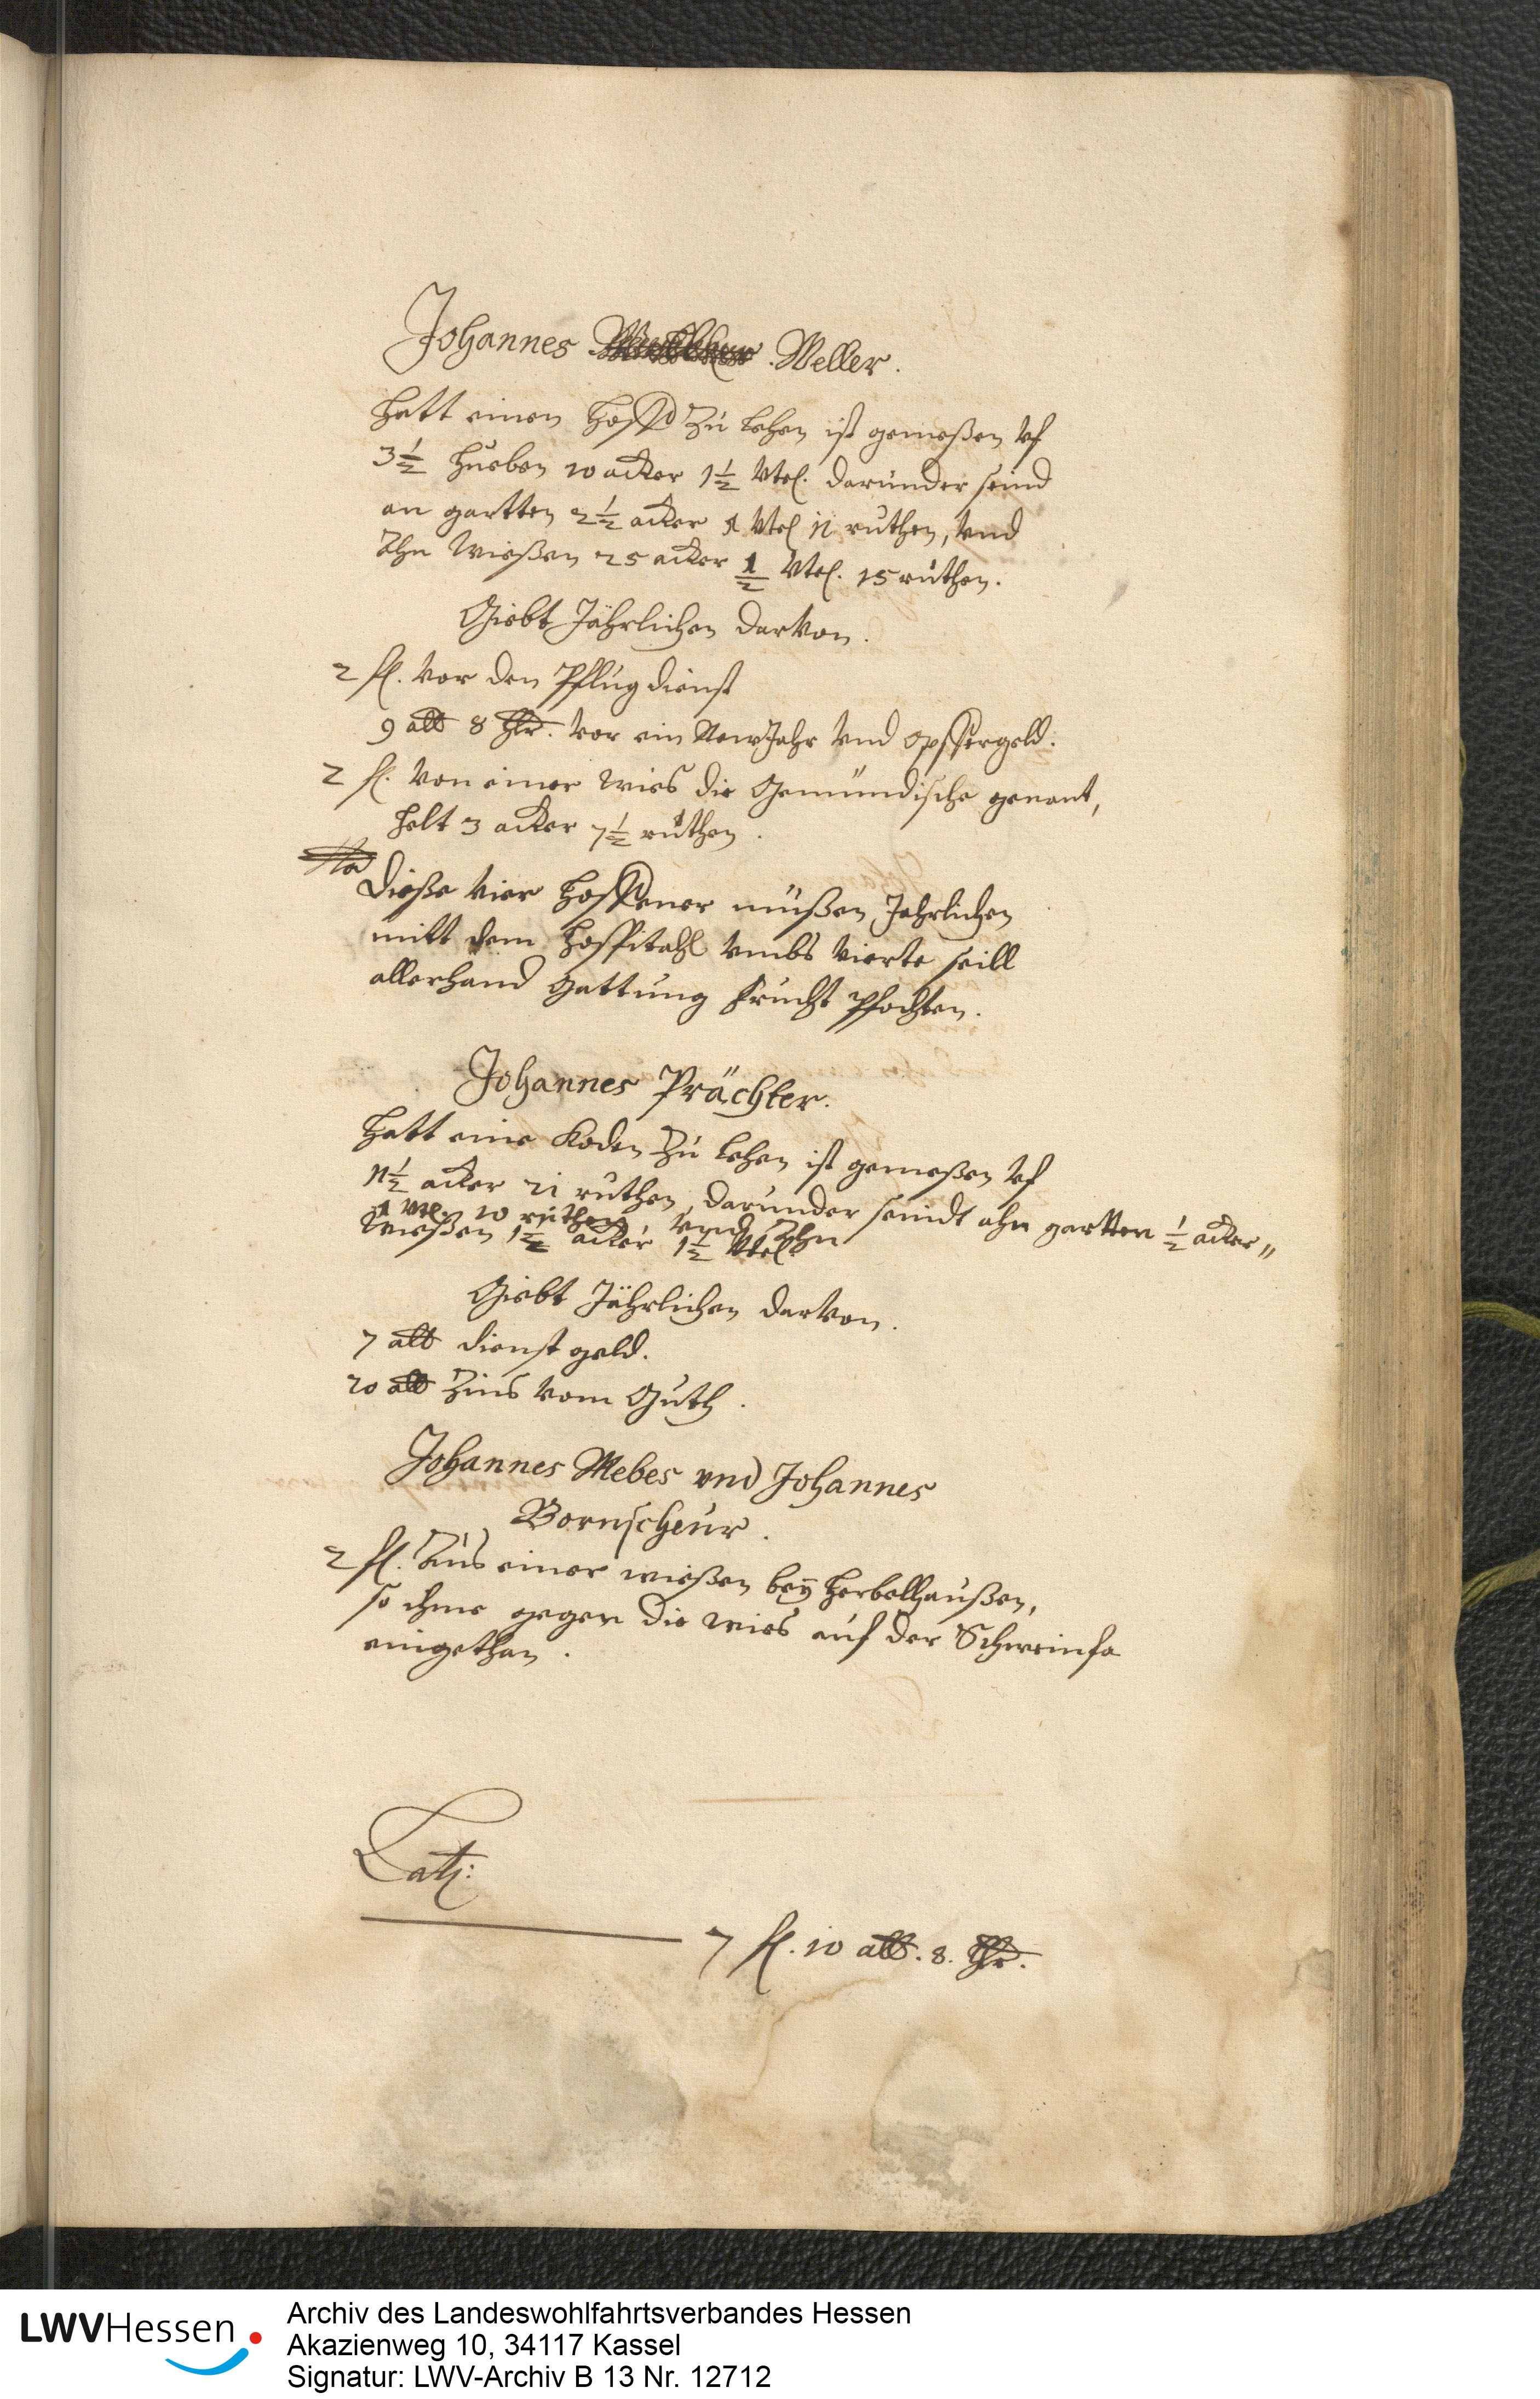 Johannes Weller.
Hatt einen Hoff zu Lehen ist gemeßen vf
3½ Hueben 10 acker 1½ Vtel. darunder seind
an gartten 2½ acker 1 Vtel 11 ruthen, vnd
Ahn Wießen 25 acker ½ Vtel. 15 ruthen.
Giebt Jährlichen darvon.
2 fl. vor den Pflugdienst
9 alb 8 hlr. vor ein New Jahr vnd opffergeld.
2 fl. von einer wies die Gemündische genant,
helt 3 acker 7½ ruthen.
Nota
Dieße vier Hoffener müßen Jahrlichen
mitt dem Hospitahl vmbs vierte seill
allerhand Gattung frucht pfachten.
Johannes Prächter.
Hatt eine Koden zu Lehen ist gemeßen vf
11½ acker 21 ruthen, darunder seindt ahn gartten ½ acker,,
1 Vtl. 10 ruthen vnd Ahn
Wießen 1½ acker 1½ Vtel.
Giebt Jährlichen darvon.
7 alb dienstgeld.
20 alb Zins vom Guth.
Johannes Mebes vnd Johannes
Bornscheur.
2 fl. Aus einer wießen bey Herbelhaußen,
so ihme gegen die wies auf der Schweinfa
eingethan.
Lat:
7 fl. 10 alb. 8. hlr.
LWVHessen
Archiv des Landeswohlfahrtsverbandes Hessen
Akazienweg 10, 34117 Kassel
Signatur: LWV-Archiv B 13 Nr. 12712